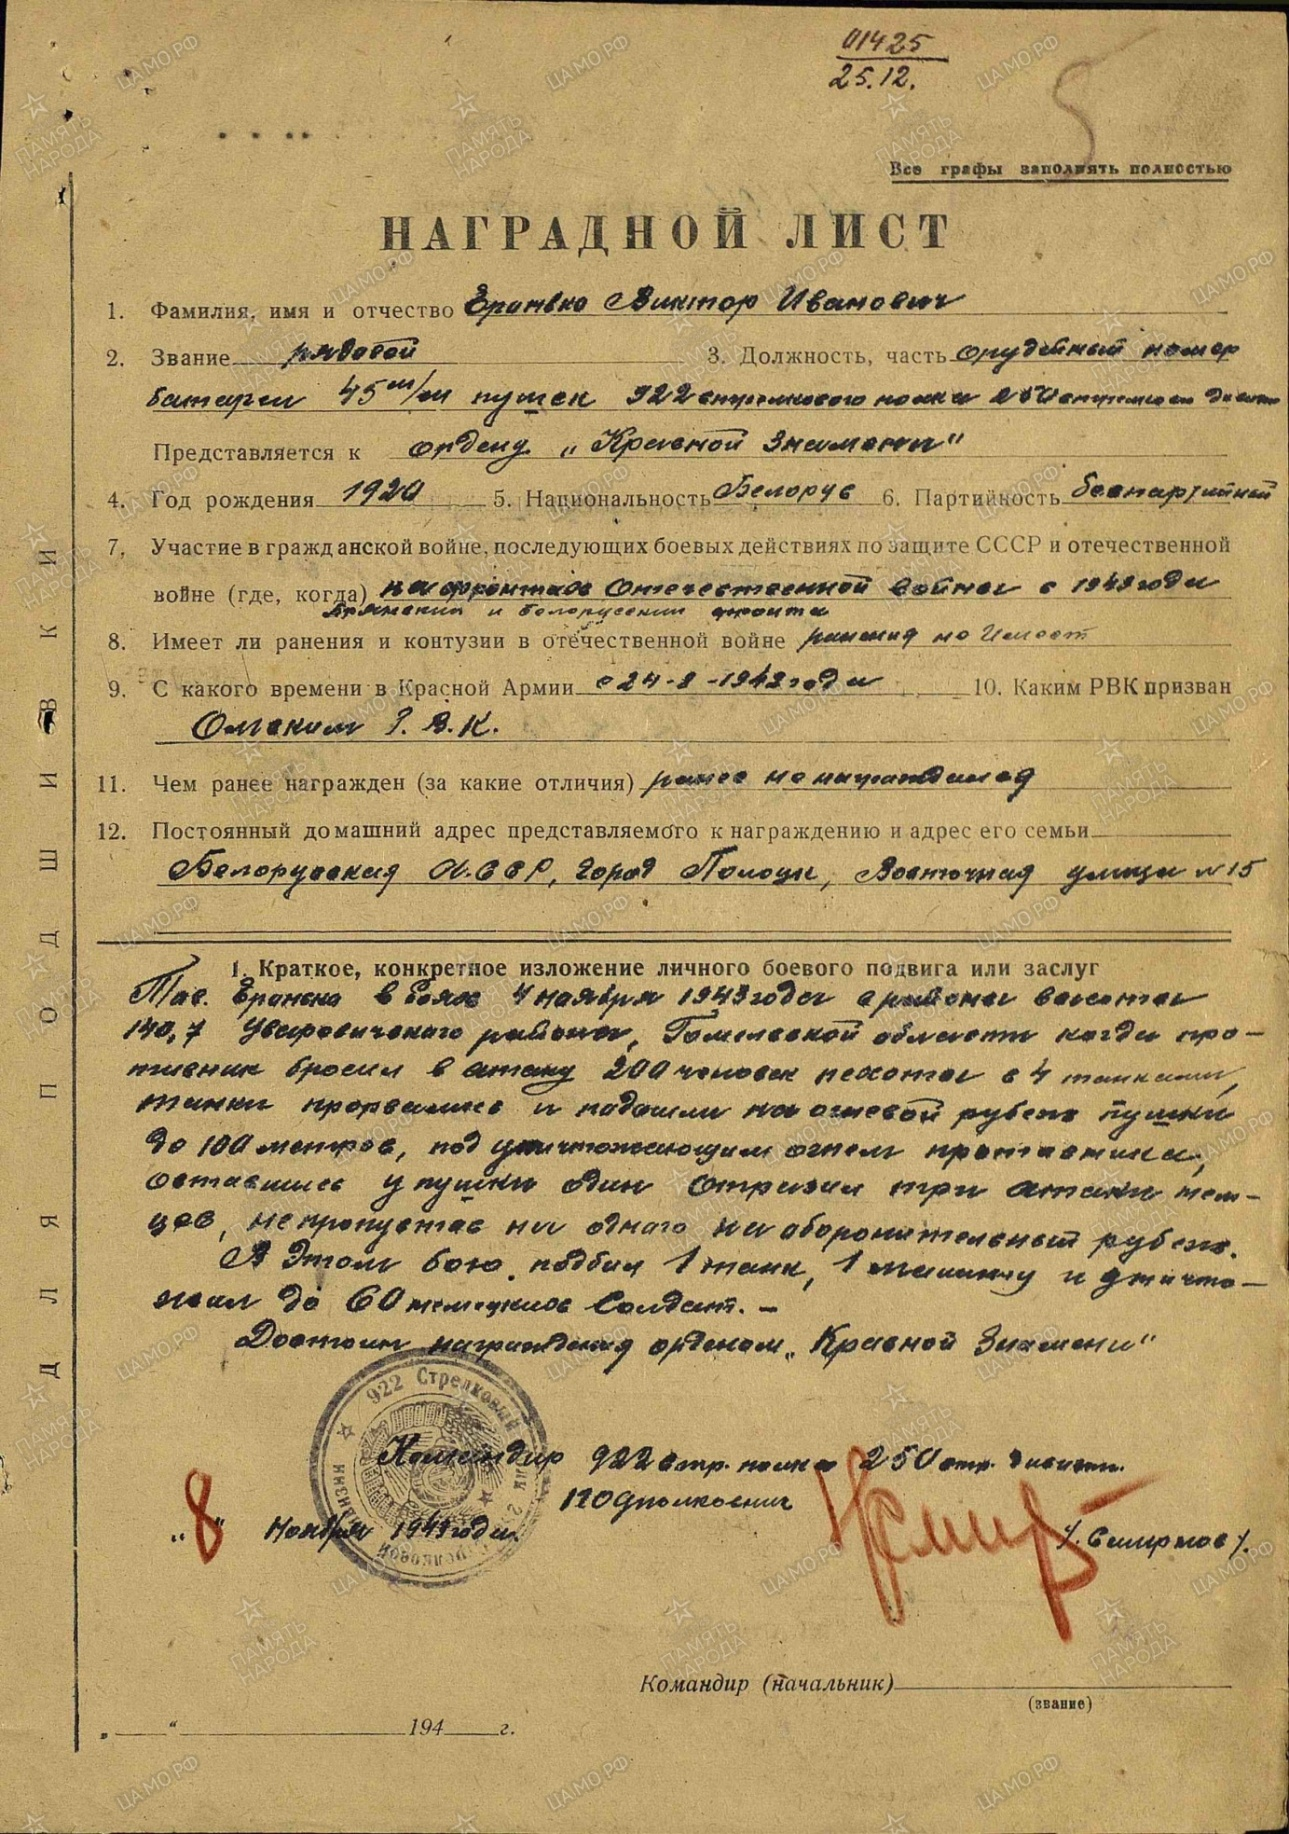 01425
25.12.
5
Все графы заполнять полностью
НАГРАДНОЙ ЛИСТ
1. Фамилия, имя и отчество Виктор Иванович
2. Звание рядовой 3. Должность, часть орудейный номер
батареи 45 м/м пушек 922 стрелкового полка 250 стрелковой дивизии
Представляется к ордену „Красной Знамени"
4. Год рождения 1920 5. Национальность Белорус 6. Партийность беспартийный
7. Участие в гражданской войне, последующих боевых действиях по защите СССР и отечественной
войне (где, когда) на фронтах Отечественной войны с 1943 года
Брянский и белорусский фронта
8. Имеет ли ранения и контузии в отечественной войне ранения не имеет
9. С какого времени в Красной Армии с 24-8-1943 года 10. Каким РВК призван
Омским Р.В.К.
11. Чем ранее награжден (за какие отличия) ранее не награждался
12. Постоянный домашний адрес представляемого к награждению и адрес его семьи
Белорусская С.С.Р, город Полоцк, Восточная улица №15
1. Краткое, конкретное изложение личного боевого подвига или заслуг
Тов. в боях 4 ноября 1943 года в районе высоты
140,7 Уваровического района, Гомельской области когда про-
тивник бросил в атаку 200 человек пехоты с 4 танками,
танки прорвались и подошли на огневой рубеж пушки
до 100 метров, под уничтожающим огнем противника,
оставшись у пушки один отразил три атаки нем-
цев, не пропустив ни одного на оборонительный рубеж.
В этом бою подбил 1 танк, 1 машину и уничто-
жил до 60 немецких солдат. —
Достоин награждения орденом „Красной Знамени"
922 Стрелковый полк 2 стрелковой дивизии
Командир 922 стр. полка 250 стр. дивизии
подполковник
/Смирнов/.
„8" Ноября 1943 года.
Командир (начальник)
(звание)
„ " 194 г.
ДЛЯ ПОДШИВКИ
ПАМЯТЬ НАРОДА
ЦАМО.РФ